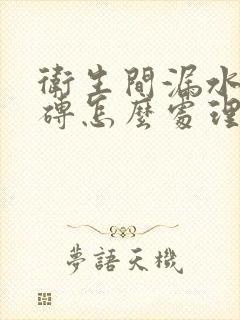 衛生間漏水
磚怎麼處理
夢語天機